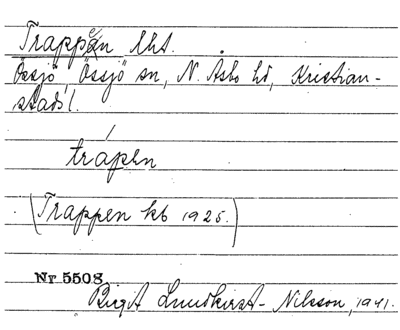 Trappen lht.
Össjö, Össjö sn, N. Åsbo hd, Kristian-
stads l.
trápn
(Trappen kb 1925.)
Nr 5508
Birgit Lundkvist-Nilsson, 1941.